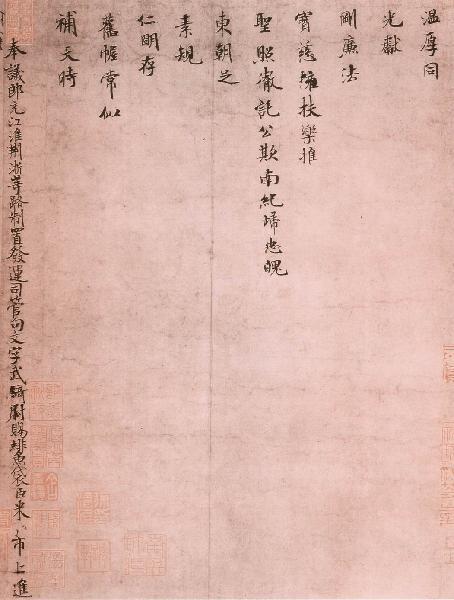 温厚同
光獻
剛廉法
寶慈擁扶樂推
聖照徹託公欺南紀歸忠魄
東朝足
素規
仁明存
舊幄常似
補天時
奉議郎充江淮荆浙等路制置發運司管勾文字武騎尉賜緋魚袋臣米芾上進